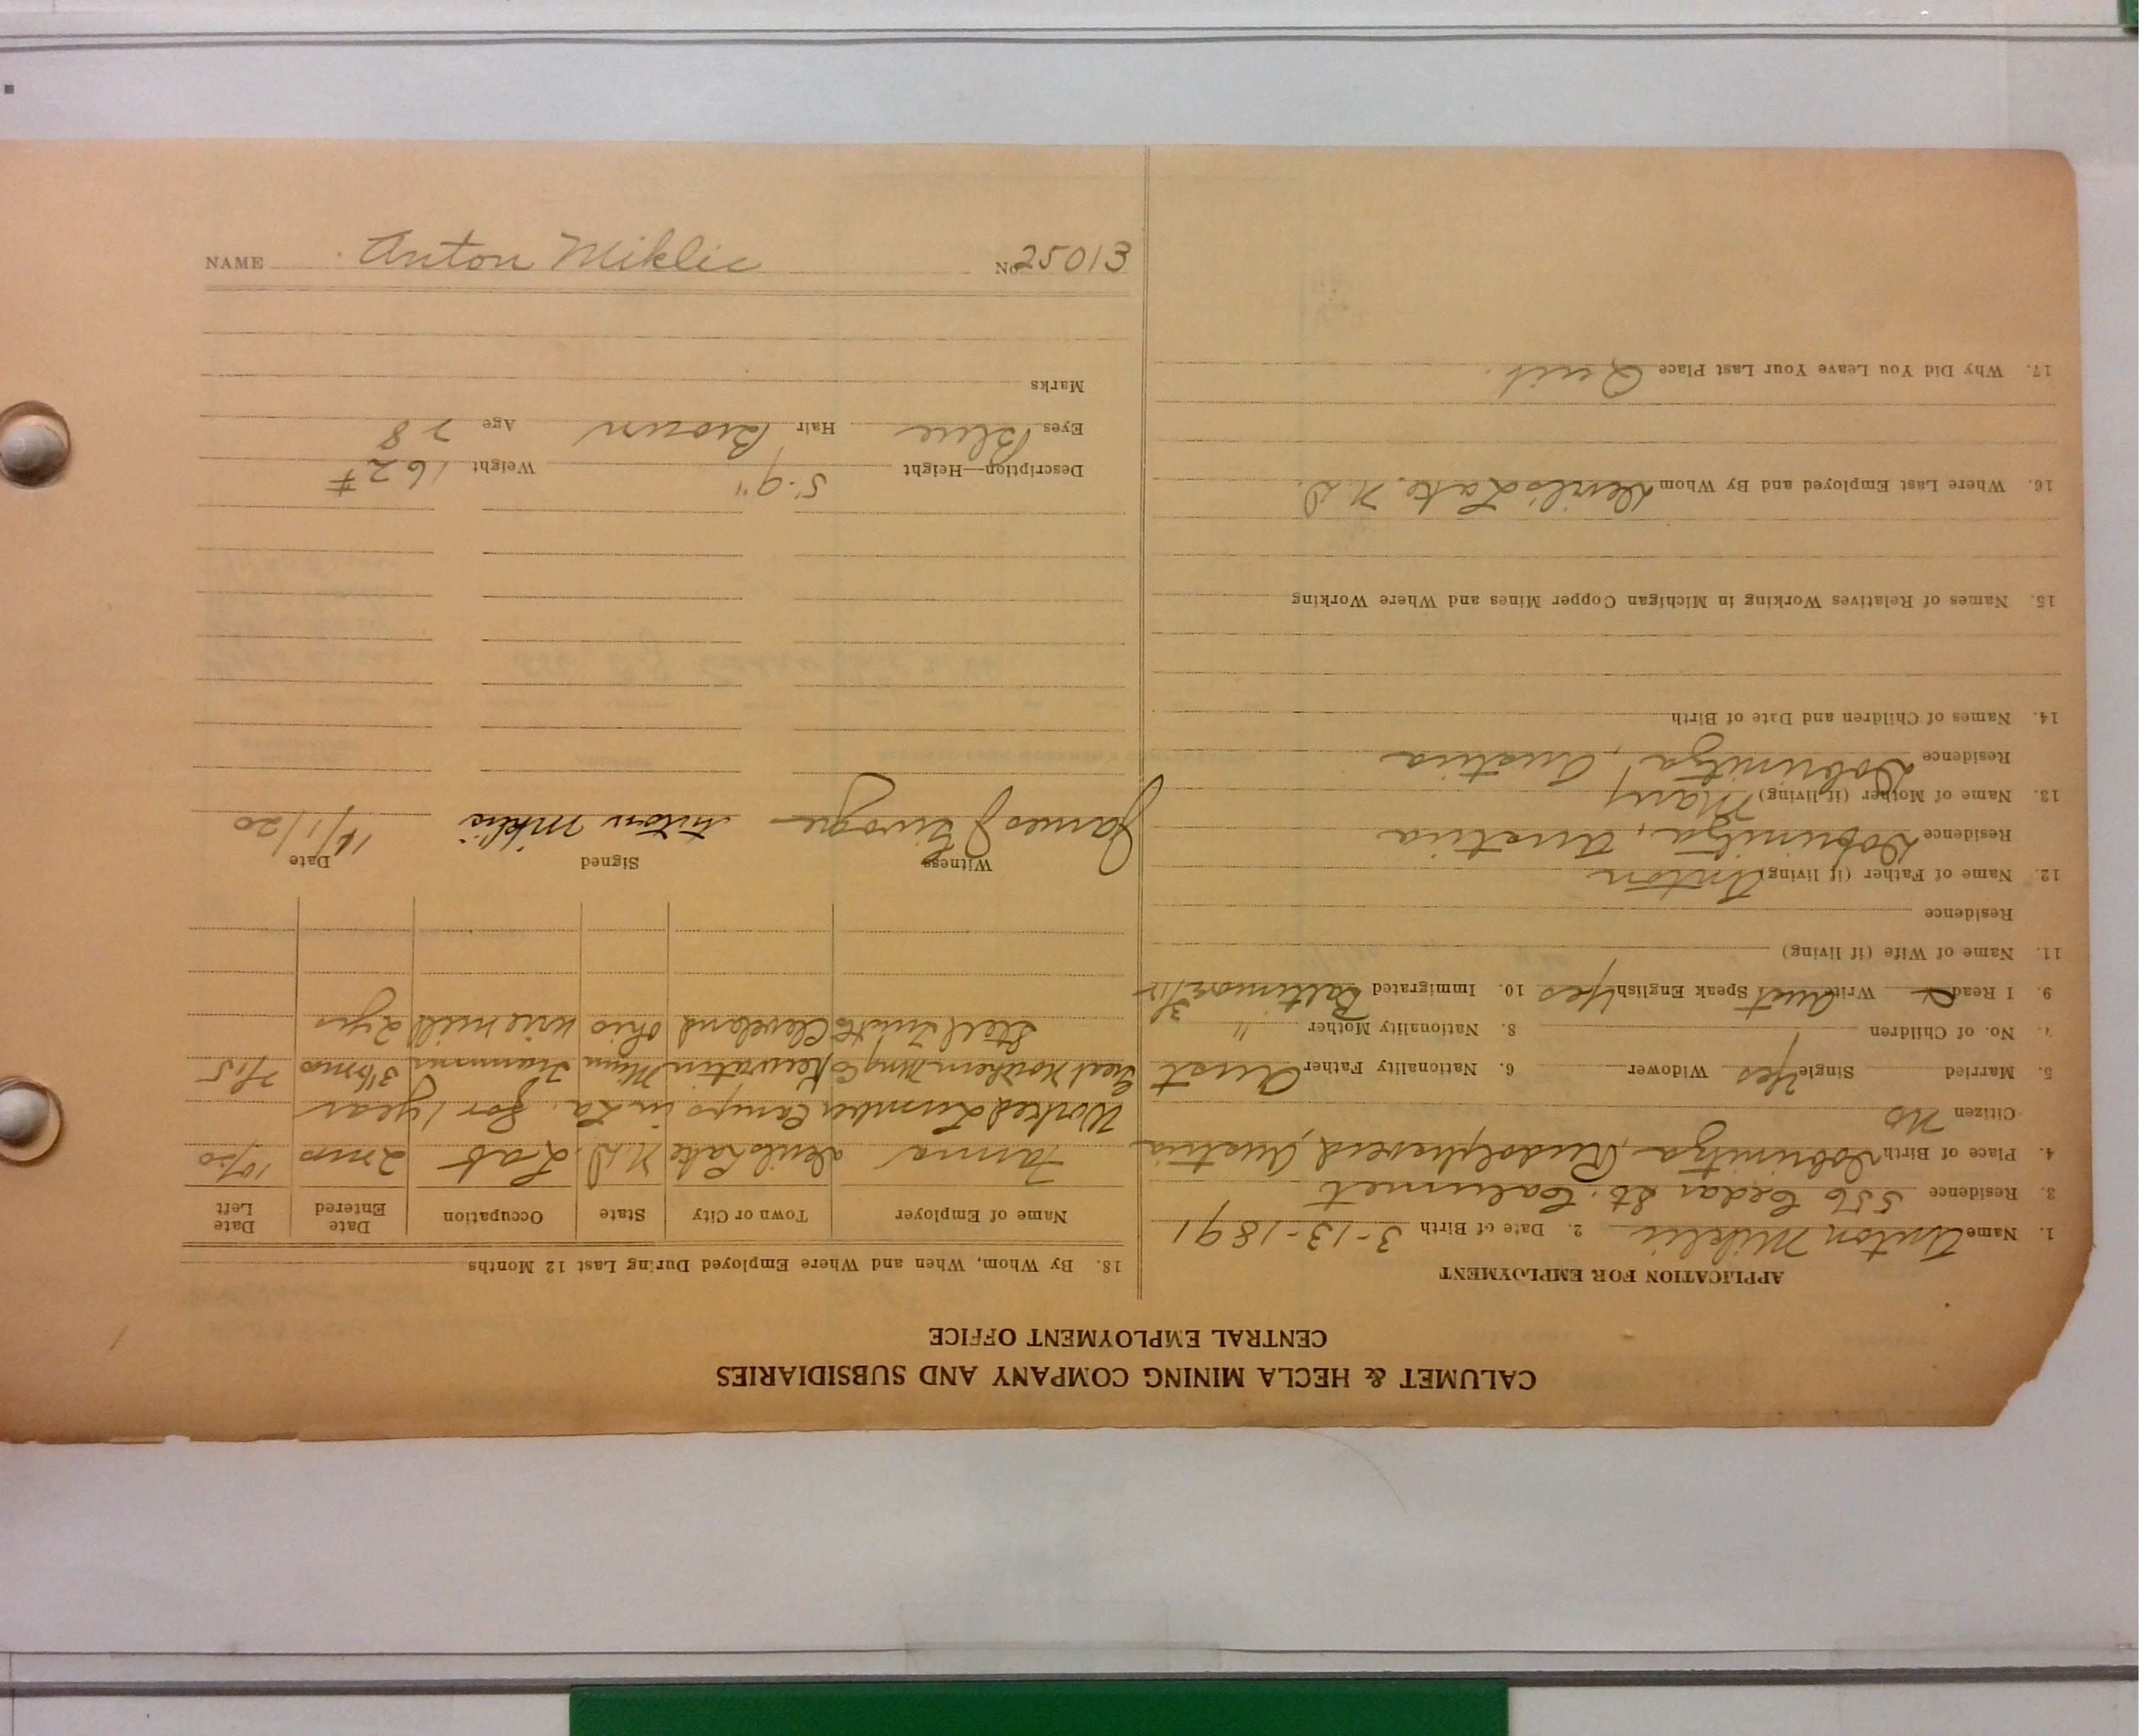 CALUMET & HECLA MINING COMPANY AND SUBSIDIARIES
CENTRAL EMPLOYMENT OFFICE
APPLICATION FOR EMPLOYMENT
1. Name Anton Miklic 2. Date of Birth 3-13-1891
3. Residence 556 Cedar St. Calumet
4. Place of Birth Dobrinitza, Rudolphsverd, Austria
Citizen No
5. Married Single Yes Widower 6. Nationality Father Aust
7. No. of Children 8. Nationality Mother "
9. I Read & Write Aust Speak English Yes 10. Immigrated Baltimore
11. Name of Wife (if living)
Residence
12. Name of Father (if living) Anton
Residence Dobrinitza, Austria
13. Name of Mother (if living) Mary
Residence Dobrinitza, Austria
14. Names of Children and Date of Birth
15. Names of Relatives Working in Michigan Copper Mines and Where Working
16. Where Last Employed and By Whom Devils Lake, N.D.
17. Why Did You Leave Your Last Place Quit.
18. By Whom, When and Where Employed During Last 12 Months
Name of Employer Town or City State Occupation Date Entered Date Left
Farms Devils Lake N.D. Lab 2 mo 10/20
Worked Lumber Camps in La. for 1 year
Great Northern Mng Co Keewatin Minn Trammer 3½ mo 7/15
Steel Cleveland Ohio wire mill 2 yrs
Witness Signed Date
James J Anton Miklic 11/1/20
Description—Height 5'-9" Weight 162 #
Eyes Blue Hair Brown Age 28
Marks
NAME Anton Miklic No 25013